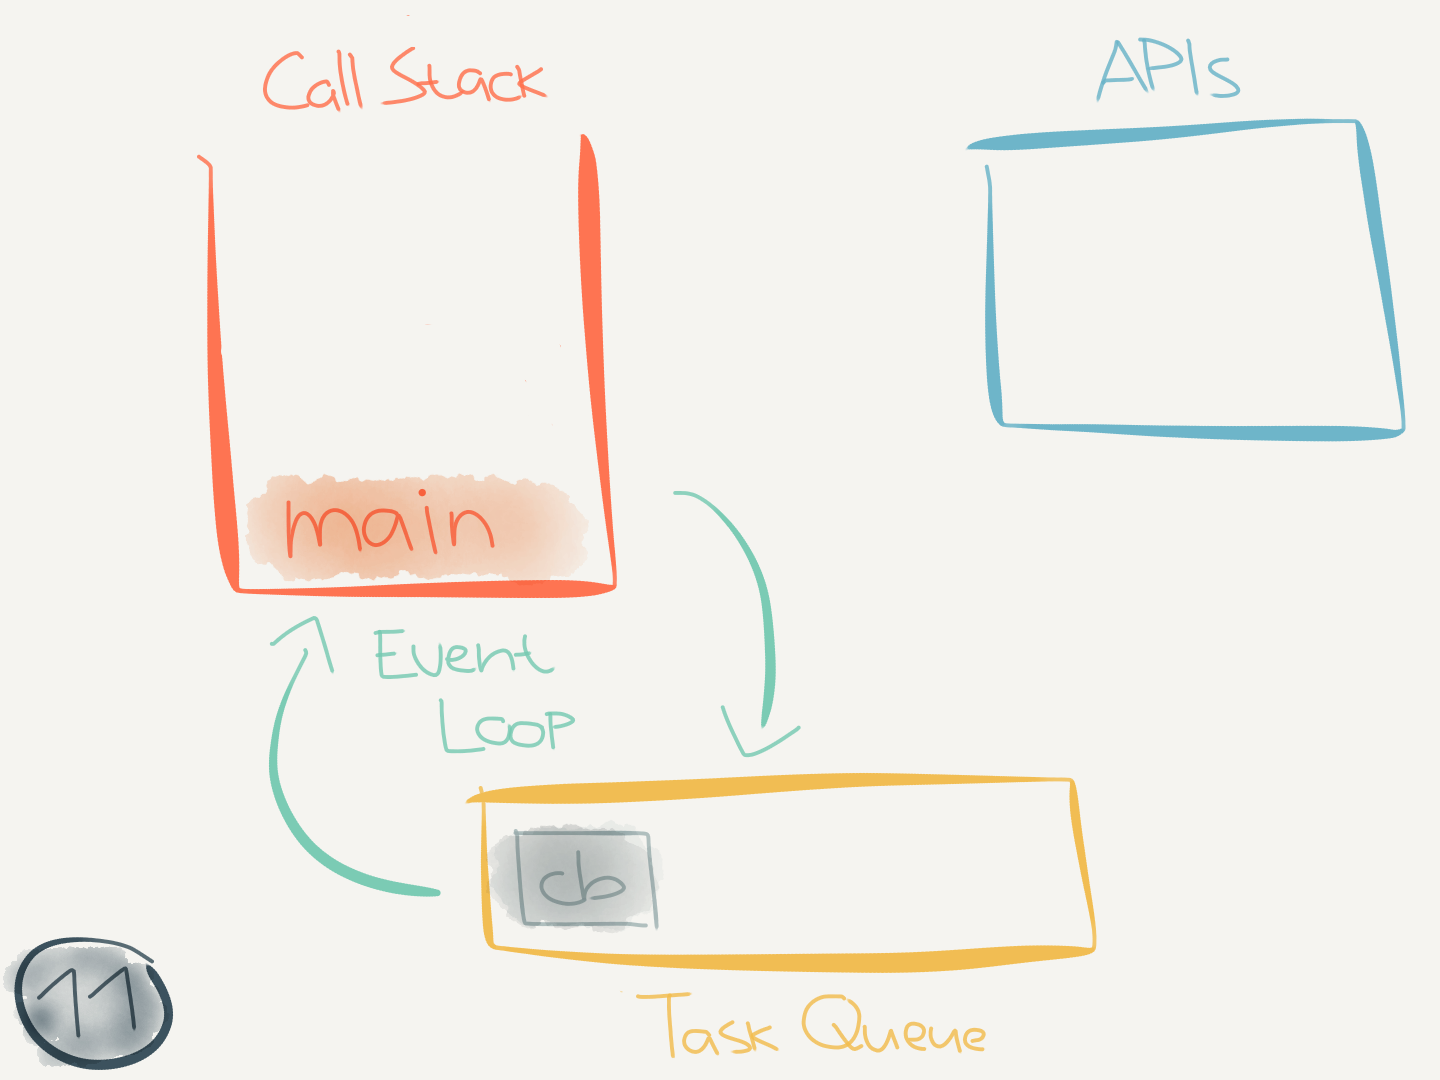 Call Stack
APIs
main
Event
Loop
cb
Task Queue
11